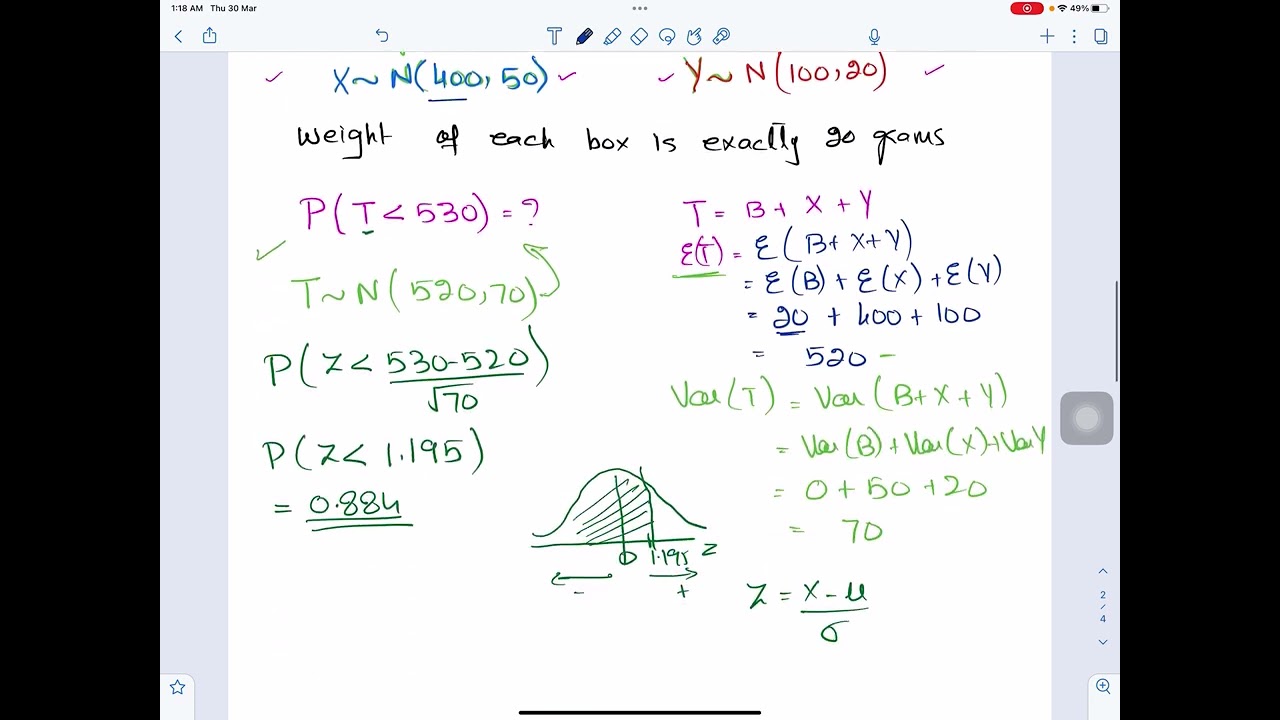 1:18 AM Thu 30 Mar
49%
X~ N(400, 50) Y~ N(100,20)
Weight of each box is exactly 20 grams
P(T<530) = ?
T~N(520,70)
P(Z< 530-520/√70)
P(Z< 1.195)
= 0.884
T = B + X + Y
E(T) = E(B+X+Y)
= E(B) + E(X) + E(Y)
= 20 + 400 + 100
= 520
Var(T) = Var(B+X+Y)
= Var(B) + Var(X) + Var Y
= 0 + 50 + 20
= 70
0 1.195 Z
- +
Z = X - μ / σ
2
/
4